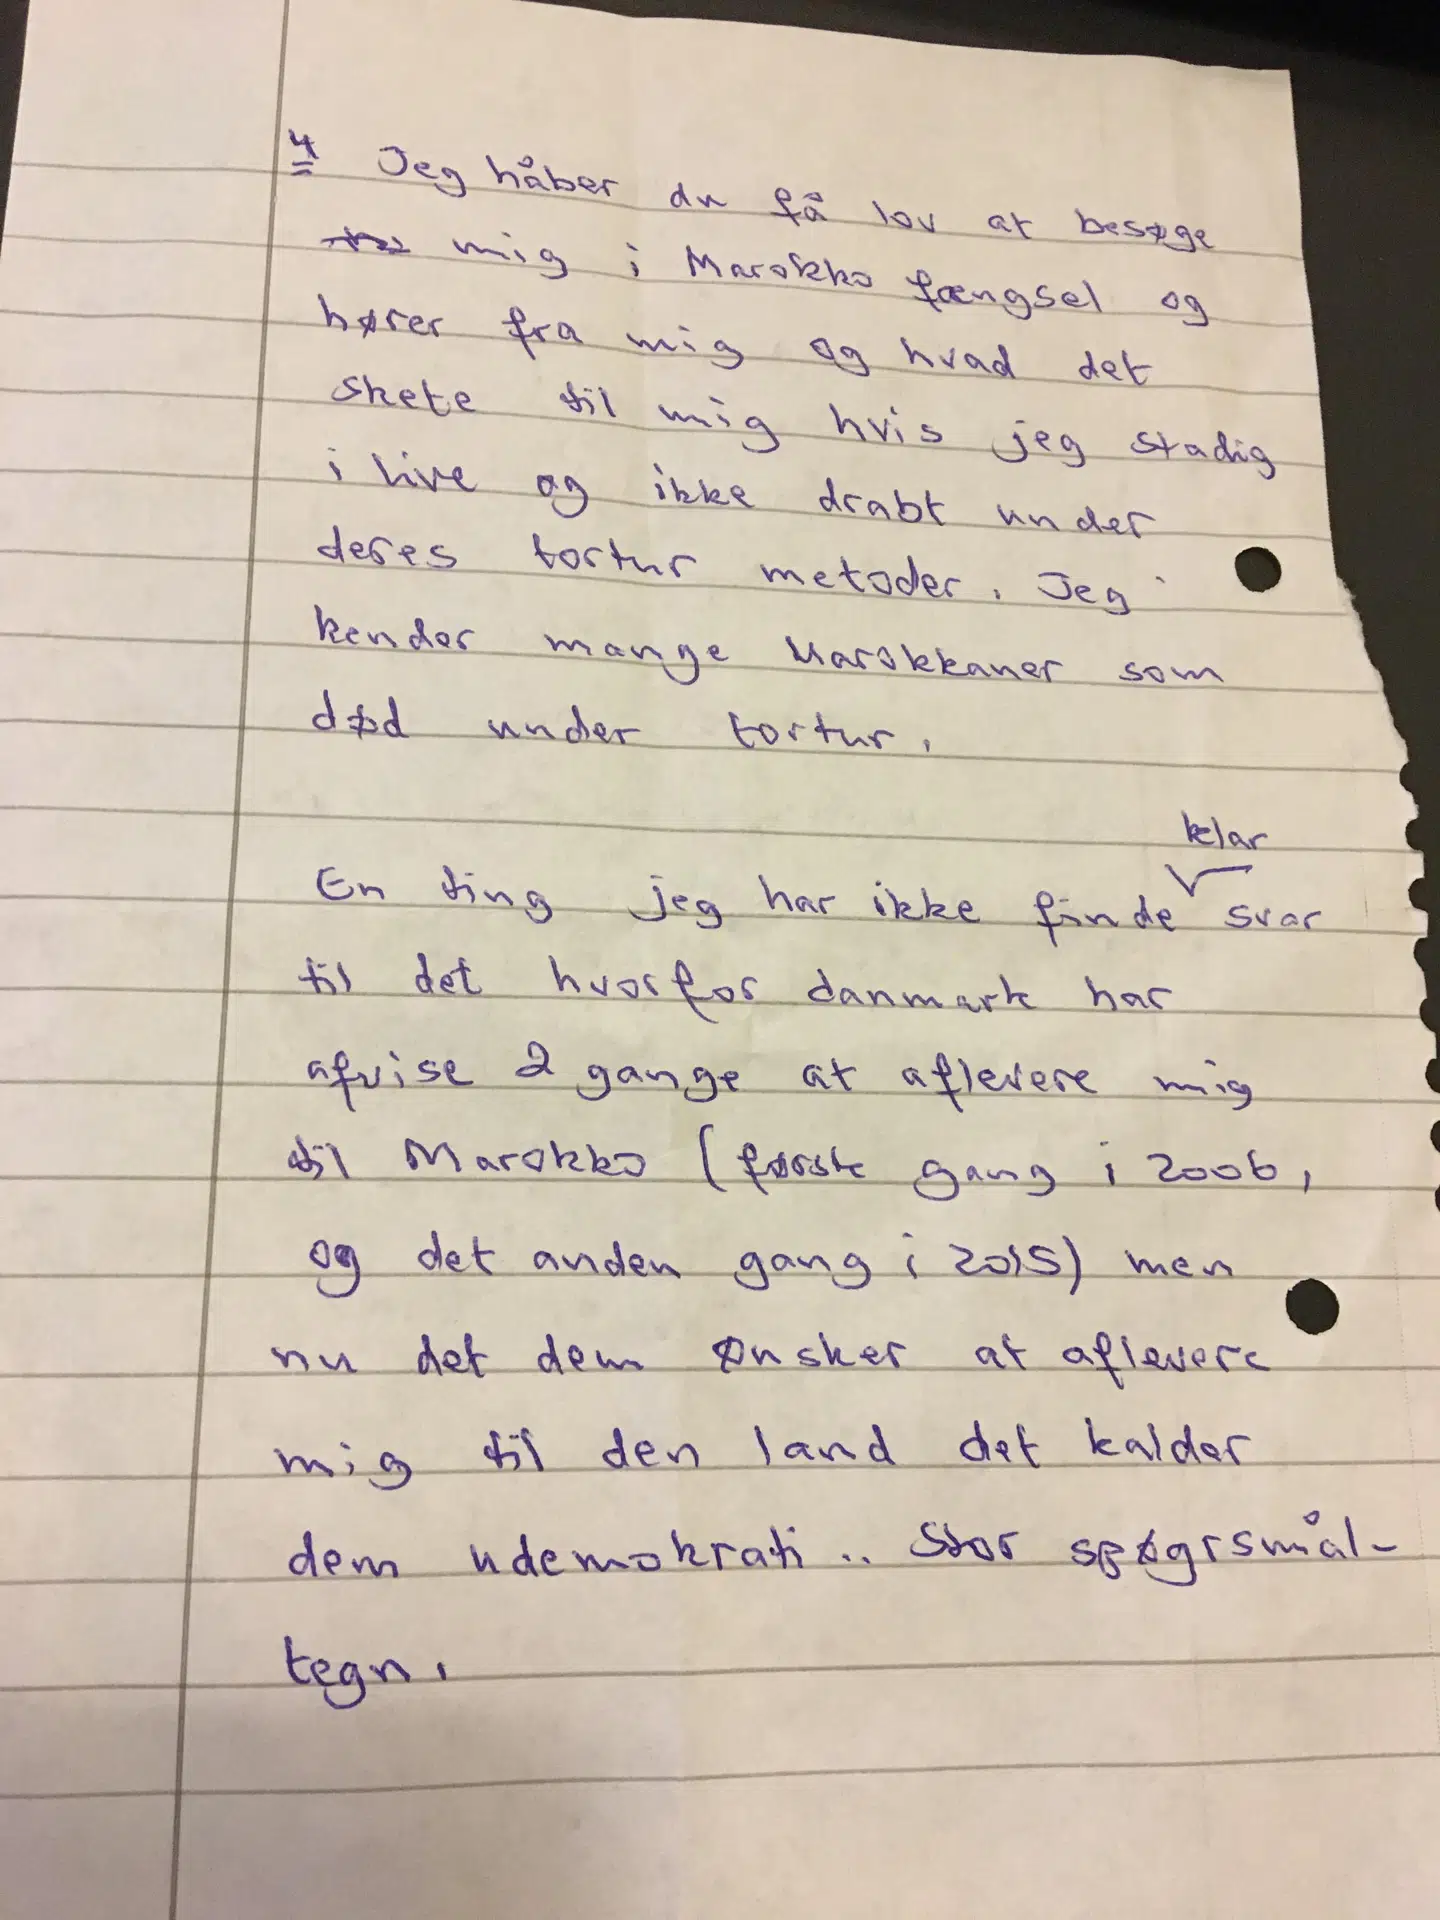 4 Jeg håber du få lov at besøge
mig i Marokko fængsel og
hører fra mig og hvad det
skete til mig hvis jeg stadig
i live og ikke drabt under
deres tortur metoder. Jeg
kender mange Marokkaner som
død under tortur.
klar
En ting jeg har ikke finde svar
til det hvorfor danmark har
afvise 2 gange at aflevere mig
til Marokko (første gang i 2006,
og det anden gang i 2015) men
nu det dem ønsker at aflevere
mig til den land det kalder
dem udemokrati.. Stor spøgrsmål-
tegn.